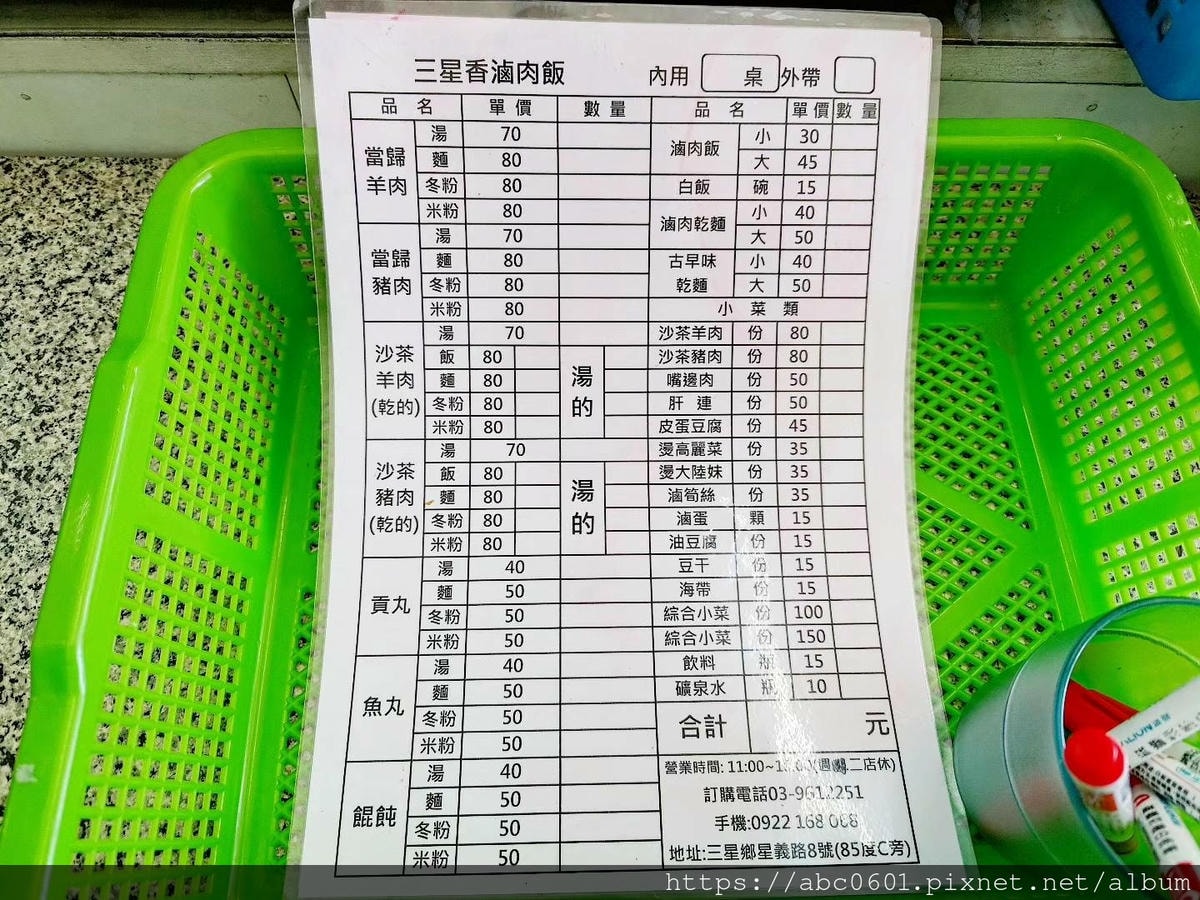 三星香滷肉飯 內用 桌 外帶
品名 單價 數量 品名 單價 數量
當歸羊肉 湯 70
麵 80
冬粉 80
米粉 80
當歸豬肉 湯 70
麵 80
冬粉 80
米粉 80
沙茶羊肉(乾的) 湯 70
飯 80 湯的
麵 80
冬粉 80
米粉 80
沙茶豬肉(乾的) 湯 70
飯 80 湯的
麵 80
冬粉 80
米粉 80
貢丸 湯 40
麵 50
冬粉 50
米粉 50
魚丸 湯 40
麵 50
冬粉 50
米粉 50
餛飩 湯 40
麵 50
冬粉 50
米粉 50
滷肉飯 小 30
大 45
白飯 碗 15
滷肉乾麵 小 40
大 50
古早味乾麵 小 40
大 50
小菜類
沙茶羊肉 份 80
沙茶豬肉 份 80
嘴邊肉 份 50
肝連 份 50
皮蛋豆腐 份 45
燙高麗菜 份 35
燙大陸妹 份 35
滷筍絲 份 35
滷蛋 顆 15
油豆腐 份 15
豆干 份 15
海帶 份 15
綜合小菜 份 100
綜合小菜 份 150
飲料 瓶 15
礦泉水 瓶 10
合計 元
營業時間: 11:00~ 二店休)
訂購電話03-9612251
手機:0922 168
地址:三星鄉星義路8號(85度C旁)
https://abc0601.pixnet.net/album